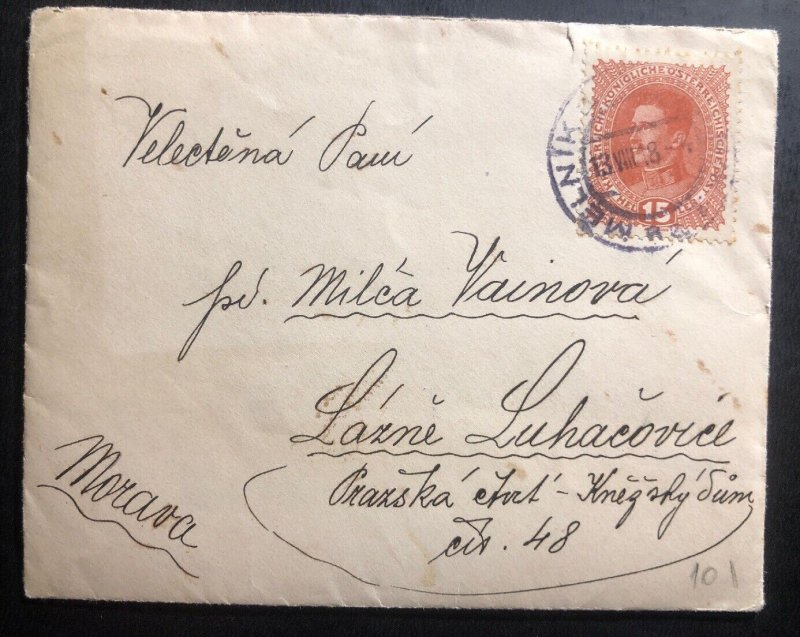 Velectěná Paní
pí. Milča Vainová
Lázně Luhačovice
Pražská čtvrť - Kněžský dům
čís. 48
Morava
KAISERLICHE KÖNIGLICHE ÖSTERREICHISCHE POST
15
MĚLNÍK
13 VIII 18
10